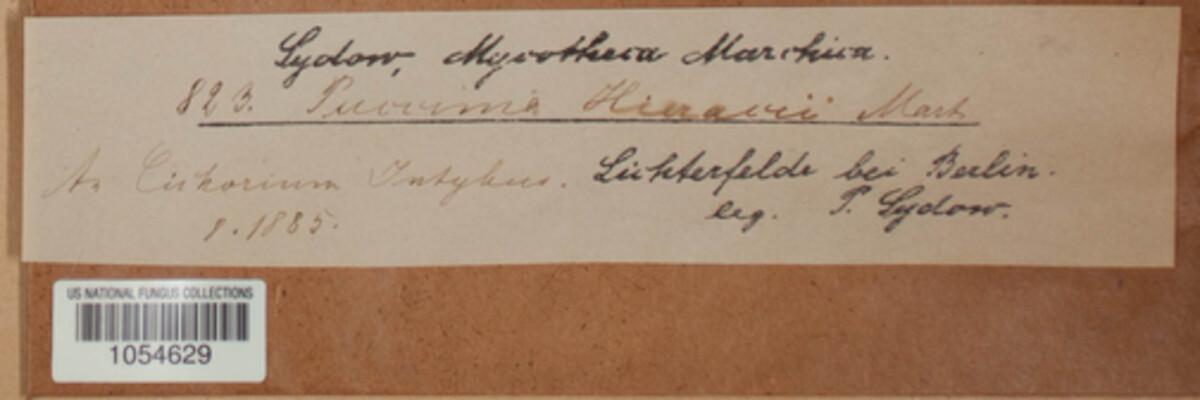 Sydow, Mycotheca Marchica.
823. Puccinia Hieracii Mart.
An Cichorium Intybus.
Lichterfelde bei Berlin.
8.1885.
leg. P. Sydow.
US NATIONAL FUNGUS COLLECTIONS
1054629